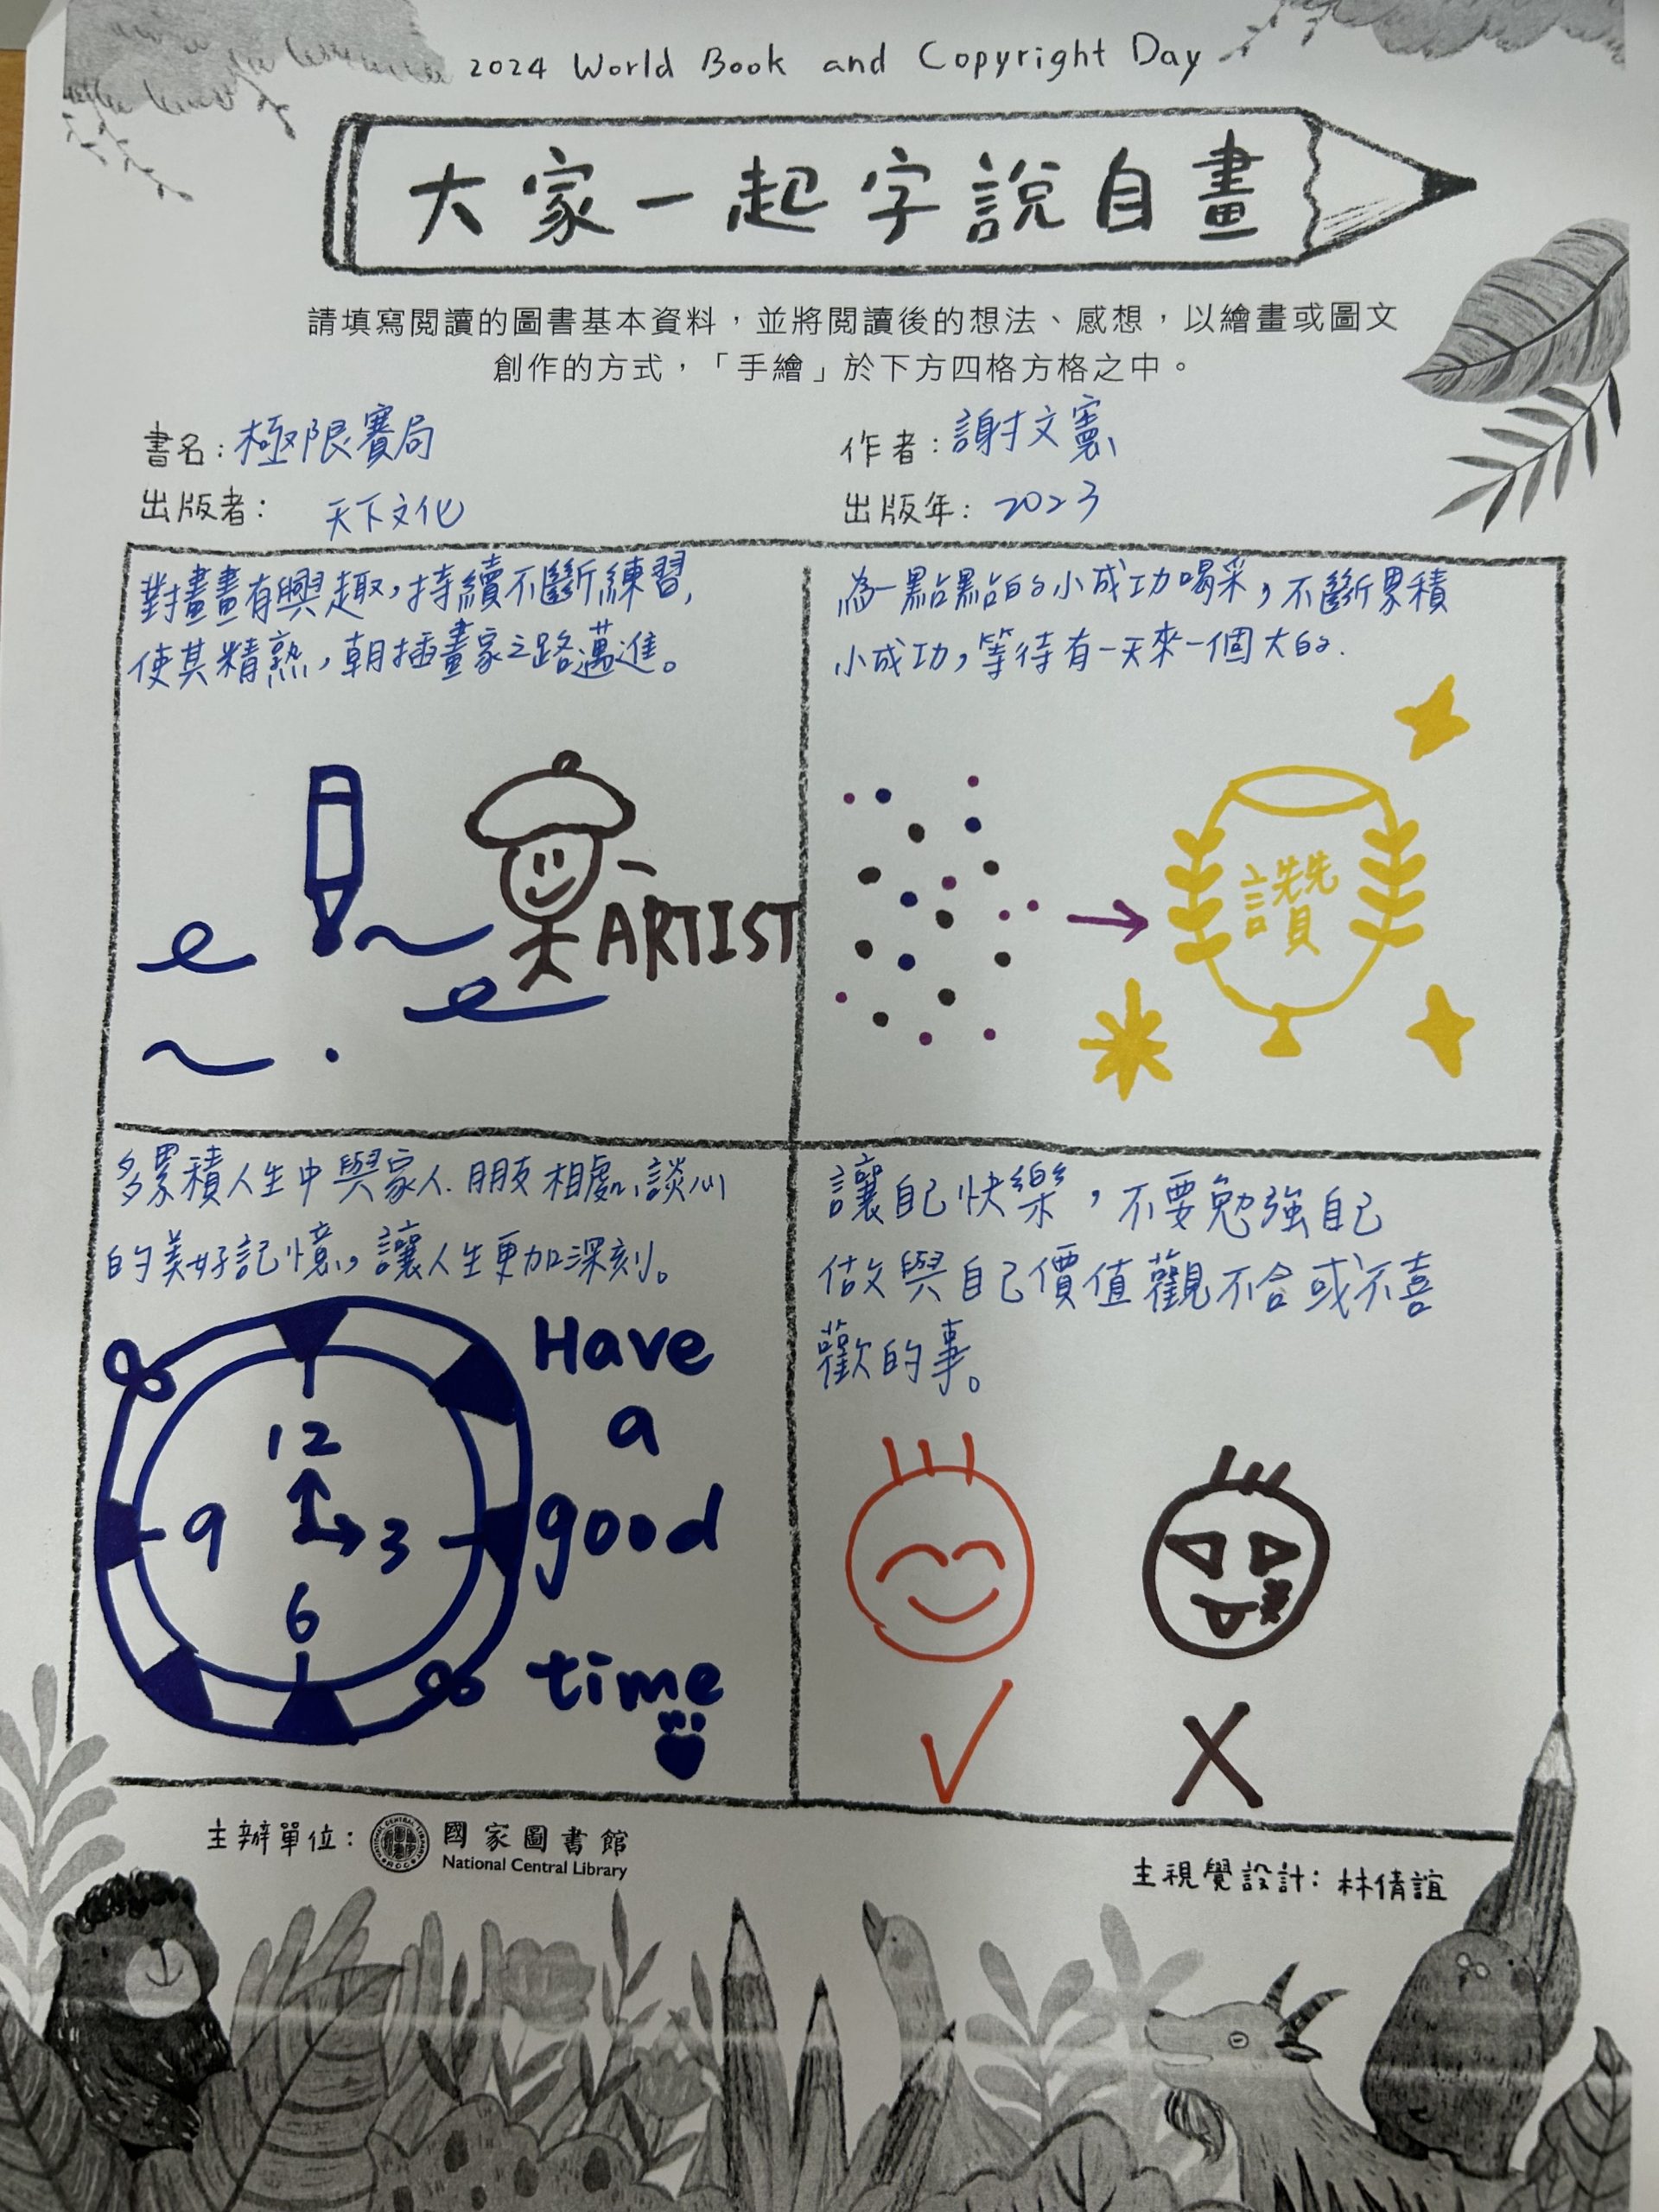 2024 World Book and Copyright Day
大家一起字說自畫
請填寫閱讀的圖書基本資料，並將閱讀後的想法、感想，以繪畫或圖文
創作的方式，「手繪」於下方四格方格之中。
書名：極限賽局
作者：謝文憲
出版者：天下文化
出版年：2023
對畫畫有興趣，持續不斷練習，
使其精熟，朝插畫家之路邁進。
ARTIST
為一點點的小成功喝采，不斷累積
小成功，等待有一天來一個大的.
讚
多累積人生中與家人、朋友相處、談心
的美好記憶，讓人生更加深刻。
12
9
3
6
Have
a
good
time
讓自己快樂，不要勉強自己
做與自己價值觀不合或不喜
歡的事。
主辦單位：國家圖書館
National Central Library
主視覺設計：林倩誼